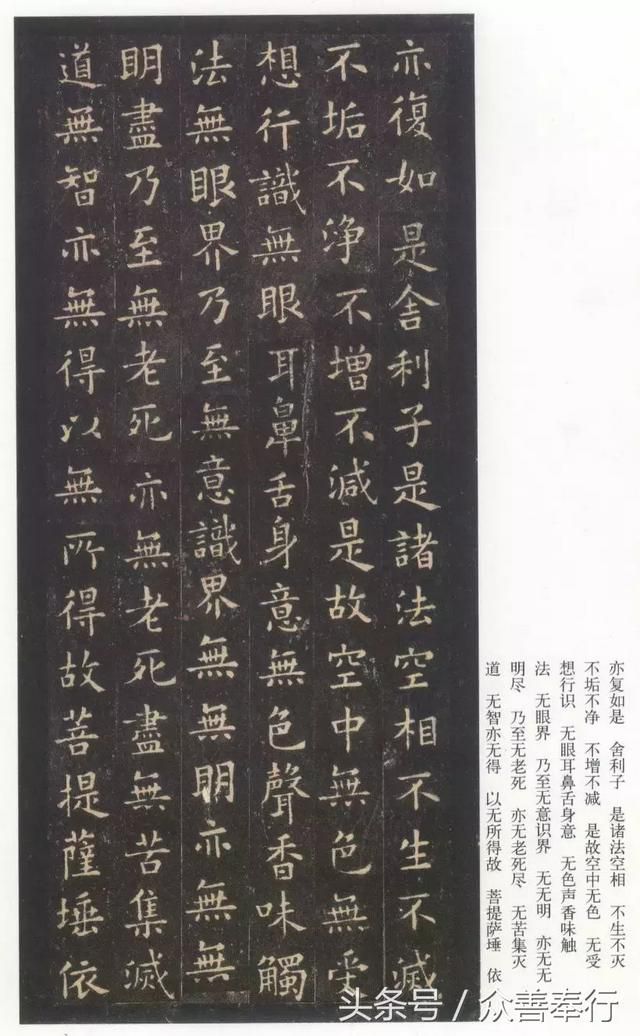 亦復如是舍利子是諸法空相不生不滅
不垢不淨不增不減是故空中無色無受
想行識無眼耳鼻舌身意無色聲香味觸
法無眼界乃至無意識界無無明亦無無
明盡乃至無老死亦無老死盡無苦集滅
道無智亦無得以無所得故菩提薩埵依
亦复如是 舍利子 是诸法空相 不生不灭
不垢不净 不增不减 是故空中无色 无受
想行识 无眼耳鼻舌身意 无色声香味触
法 无眼界 乃至无意识界 无无明 亦无无
明尽 乃至无老死 亦无老死尽 无苦集灭
道 无智亦无得 以无所得故 菩提萨埵 依
头条号／众善奉行